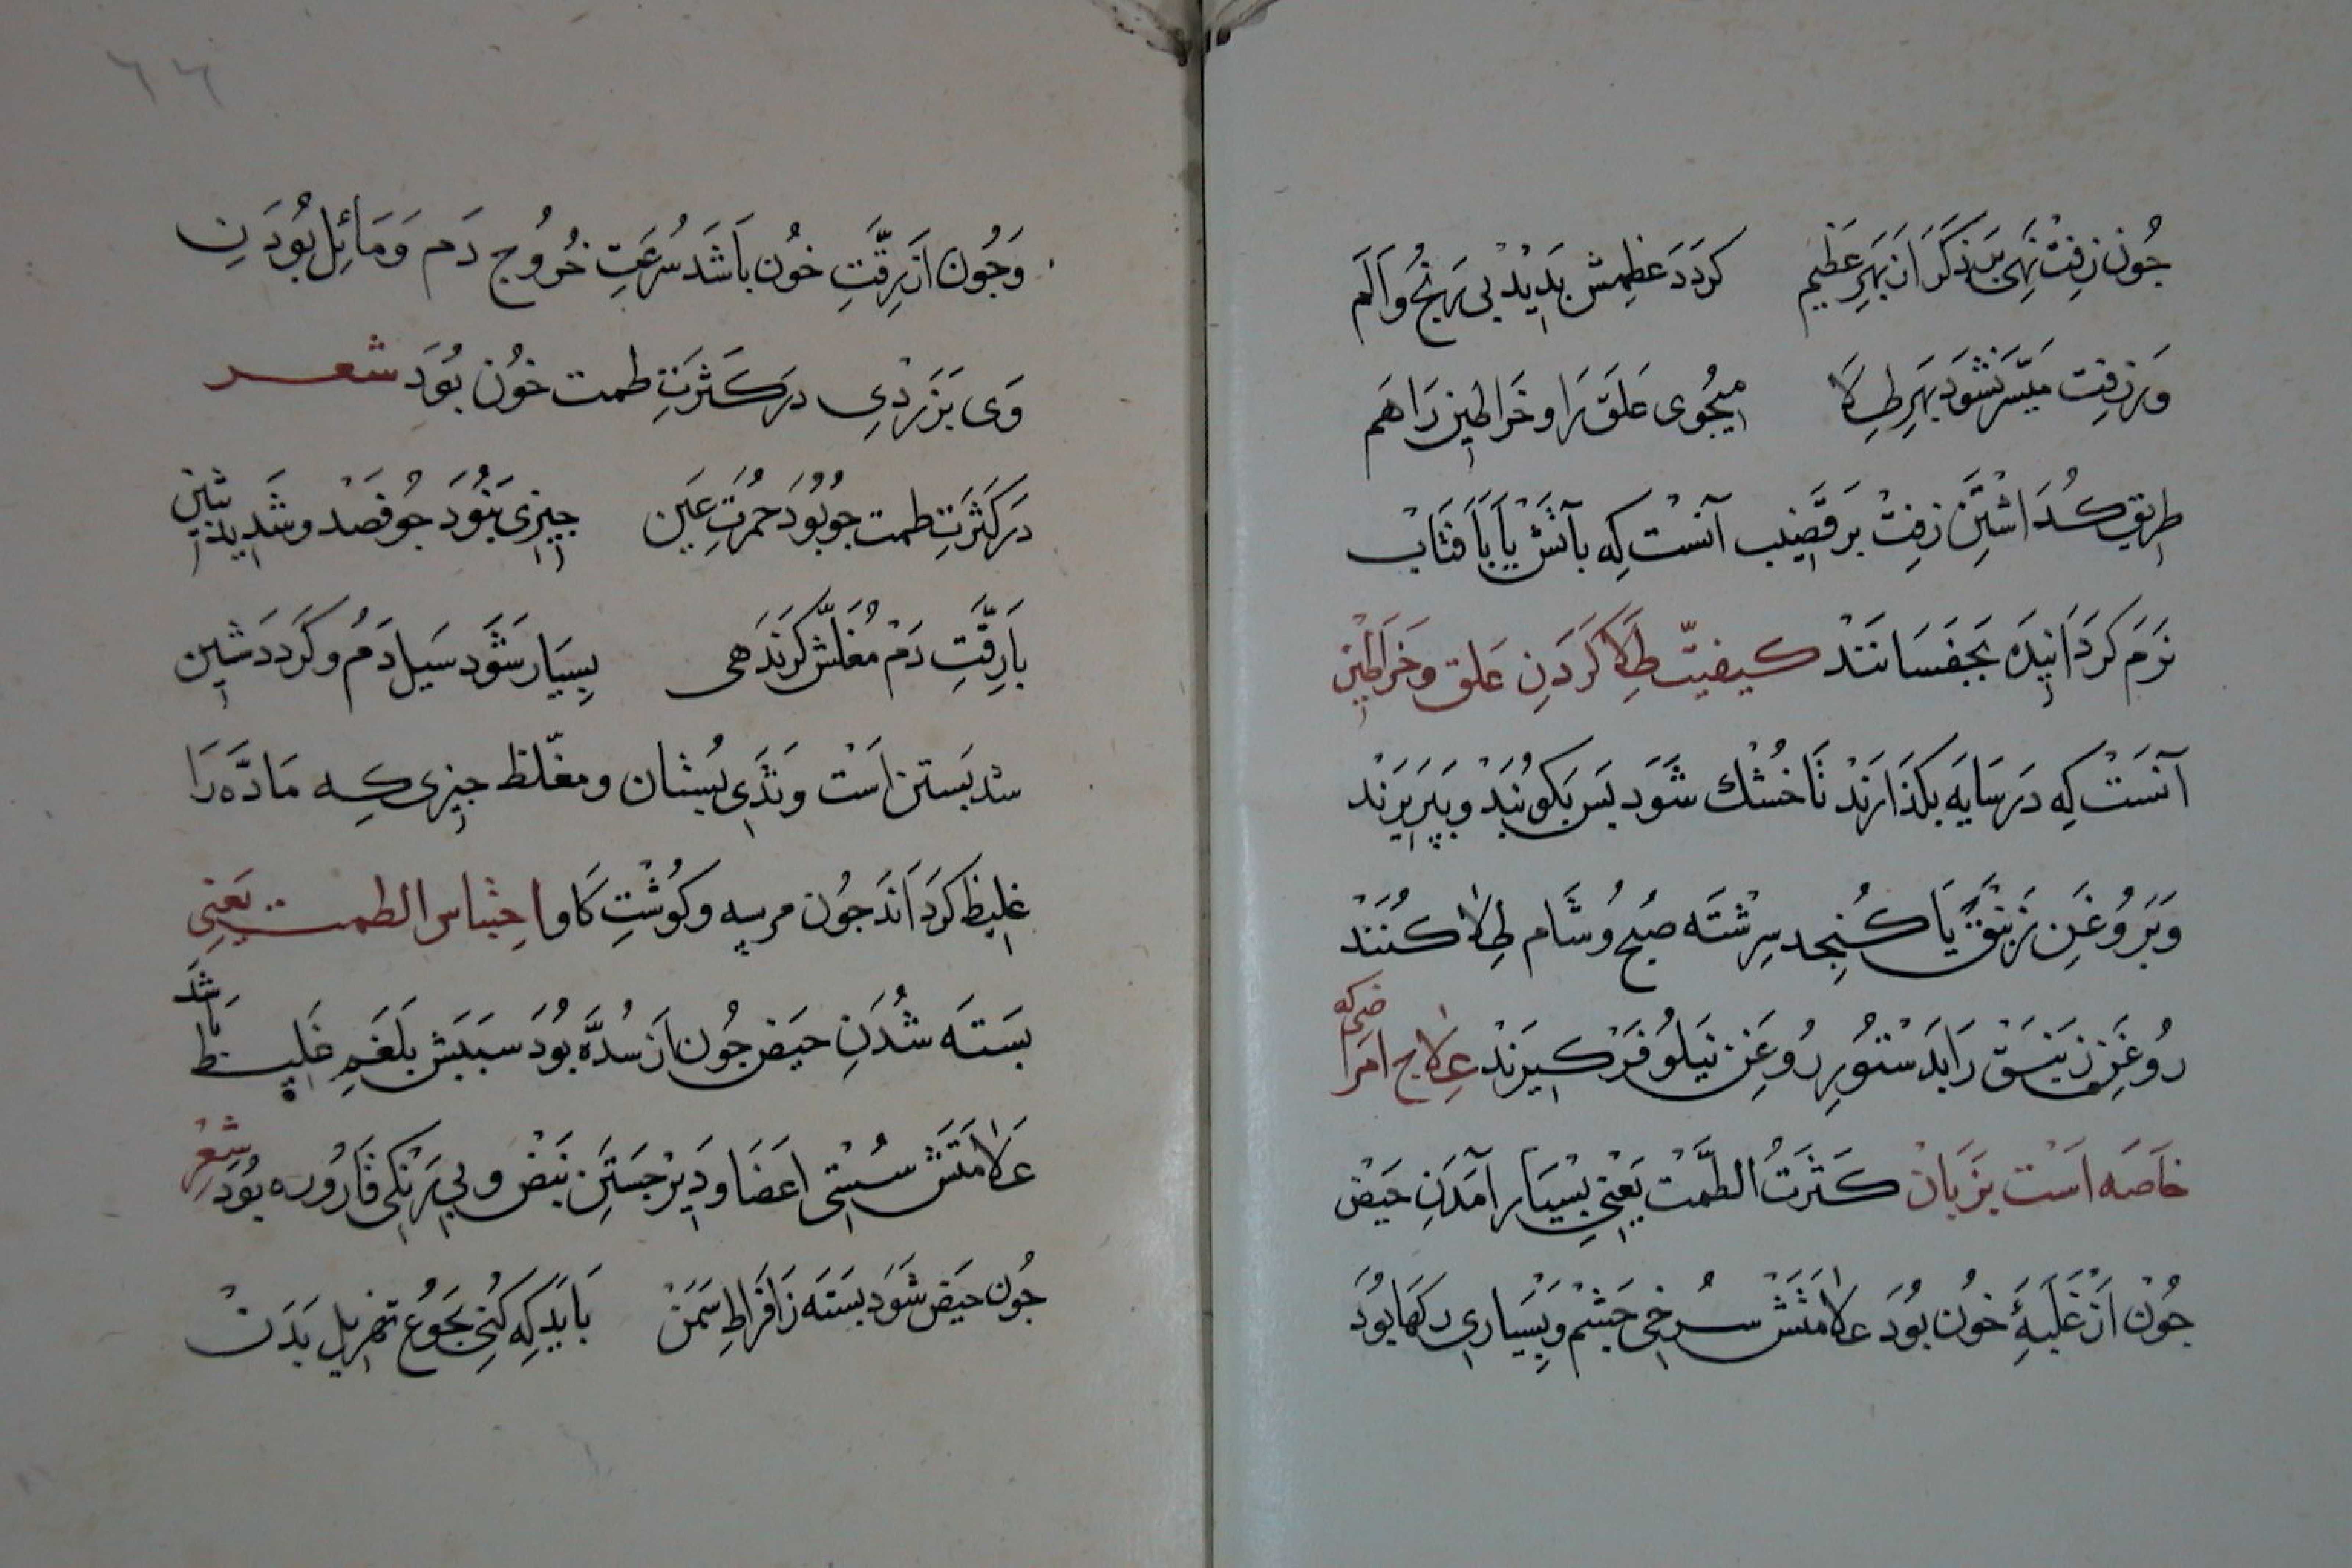 چون زفت نهی بر ذکر از بهر عظیم کردد عظمش بدید بی رنج و الم
ور زفت میسر نشود بهر طلا میجوی علق را و خراطین را هم
طریق کداشتن زفت بر قضیب آنست که بآتش یا بآفتاب
نرم کردانیده بچفسانند کیفیت طلا کردن علق و خراطین
آنست که در سایه بکذارند تا خشك شود بس بکوبند و ببیزند
و بروغن زنبق یا کنجد سرشته صبح و شام طلا کنند
روغن زنبق را بدستور روغن نیلوفر کیرند علاج امراضی که
خاصه است بزنان کثرت الطمث یعنی بسیار آمدن حیض
چون از غلبهٔ خون بود علامتش سرخی چشم و بسیاری رکها بود
و چون از رقت خون باشد سرعت خروج دم و مائل بودن
وی بزردی در کثرت طمث خون بود شعر
در کثرت طمث چو بود حمرت عین چیزی نبود چو فصد و شد یدین
با رقت دم مغلظش کر ندهی بسیار شود سیل دم و کردد شین
شد بستن است و ثدی بستان و مغلظ چیزی که ماده را
غلیظ کرداند چون هریسه و کوشت کاو احتباس الطمث یعنی
بسته شدن حیض چون از سده بود سببش بلغم غلیظ باشد
علامتش سستی اعضا و دیر جستن نبض و بی رنکی قاروره بود شعر
چون حیض شود بسته ز افراط سمن باید که کنی بجوع تهزیل بدن
٦٦